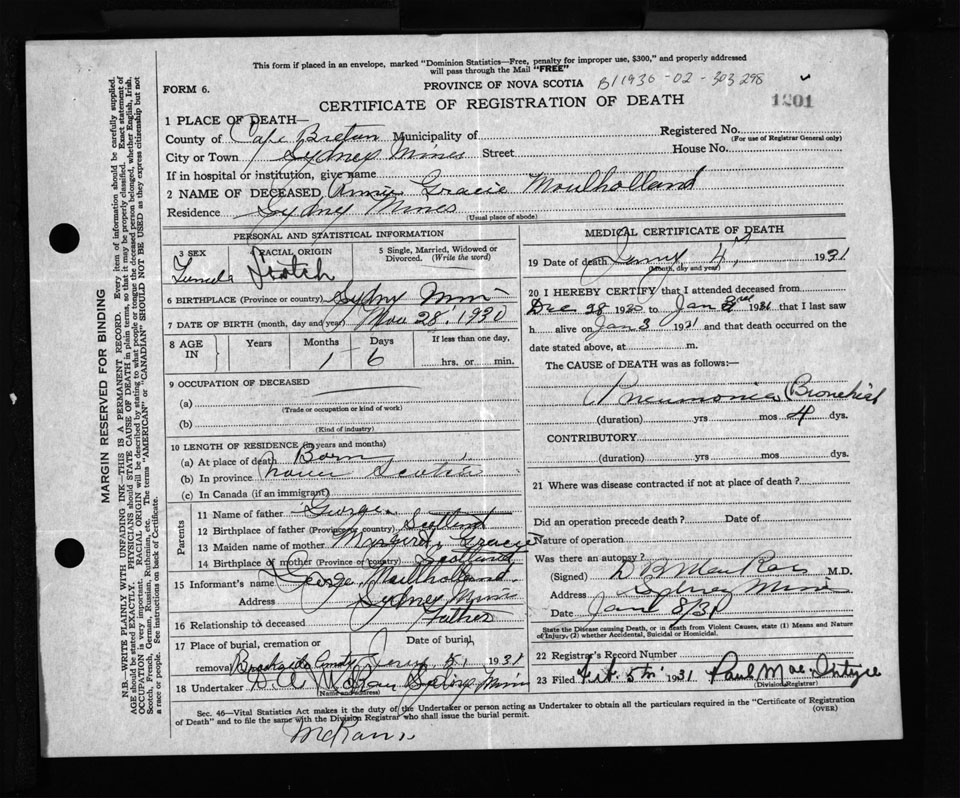 This form if placed in an envelope, marked "Dominion Statistics—Free, penalty for improper use, $300," and properly addressed
will pass through the Mail "FREE"
FORM 6.
PROVINCE OF NOVA SCOTIA B11930-02-303298
CERTIFICATE OF REGISTRATION OF DEATH
1201
1 PLACE OF DEATH—
County of Cape Breton Municipality of Registered No.
(For use of Registrar General only)
City or Town Sydney Mines Street House No.
If in hospital or institution, give name
2 NAME OF DECEASED Annie Gracie Moulholland
Residence Sydney Mines
(Usual place of abode)
PERSONAL AND STATISTICAL INFORMATION
3 SEX RACIAL ORIGIN 5 Single, Married, Widowed or Divorced. (Write the word)
Female Scotch
6 BIRTHPLACE (Province or country) Sydney Mines
7 DATE OF BIRTH (month, day and year) Nov 28, 1930
8 AGE IN Years Months Days If less than one day,
1 - 6 hrs. or min.
9 OCCUPATION OF DECEASED
(a)
(Trade or occupation or kind of work)
(b)
(Kind of industry)
10 LENGTH OF RESIDENCE (in years and months)
(a) At place of death Born
(b) In province Nova Scotia
(c) In Canada (if an immigrant)
Parents
11 Name of father George
12 Birthplace of father (Province or country) Scotland
13 Maiden name of mother Margaret Gracie
14 Birthplace of mother (Province or country) Scotland
15 Informant's name George Mullholland
Address Sydney Mines
16 Relationship to deceased Father
17 Place of burial, cremation or Date of burial,
removal Brookside Jany 5, 1931
18 Undertaker D. A. McRae Sydney Mines
(Name and address)
MEDICAL CERTIFICATE OF DEATH
19 Date of death January 4th, 1931
(Month, day and year)
20 I HEREBY CERTIFY that I attended deceased from
Dec 28 1930 to Jan 3rd 1931 that I last saw
h alive on Jan 3 1931 and that death occurred on
date stated above, at m.
The CAUSE of DEATH was as follows:—
Pneumonia (Bronchial
(duration) yrs mos 4 dys.
CONTRIBUTORY
(duration) yrs. mos dys.
21 Where was disease contracted if not at place of death?
Did an operation precede death? Date of
Nature of operation
Was there an autopsy?
(Signed) M.D.
Address Sydney Mines
Date Jan 8/31
State the Disease causing Death, or in death from Violent Causes, state (1) Means and Nature
of Injury, (2) whether Accidental, Suicidal or Homicidal.
22 Registrar's Record Number
23 Filed Feb. 5th 1931 Paul MacIntyre
(Division Registrar)
Sec. 46—Vital Statistics Act makes it the duty of the Undertaker or person acting as Undertaker to obtain all the particulars required in the "Certificate of Registration
of Death" and to file the same with the Division Registrar who shall issue the burial permit.
(OVER)
MARGIN RESERVED FOR BINDING
N.B.—WRITE PLAINLY WITH UNFADING INK—THIS IS A PERMANENT RECORD. Every item of information should be carefully supplied.
AGE should be stated EXACTLY. PHYSICIANS should STATE CAUSE OF DEATH in plain terms, so that it may be properly classified. Exact statement of
OCCUPATION is very important. RACIAL ORIGIN will be described by stating to what people or tongue the deceased person belonged, whether English, Irish,
Scotch, French, German, Russian, Ruthenian, etc. The terms "AMERICAN" or "CANADIAN" SHOULD NOT BE USED as they express citizenship but not
a race or people. See instructions on back of Certificate.